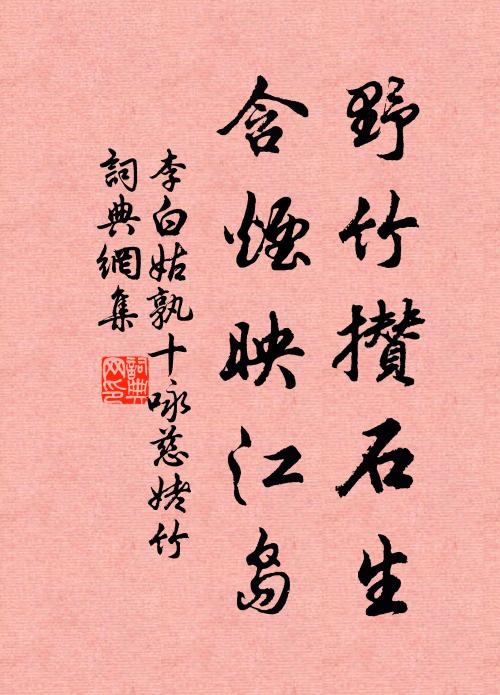 野竹攅石生
含煙映江島
李白姑孰十咏慈姥竹
詞典網集
詞典網印